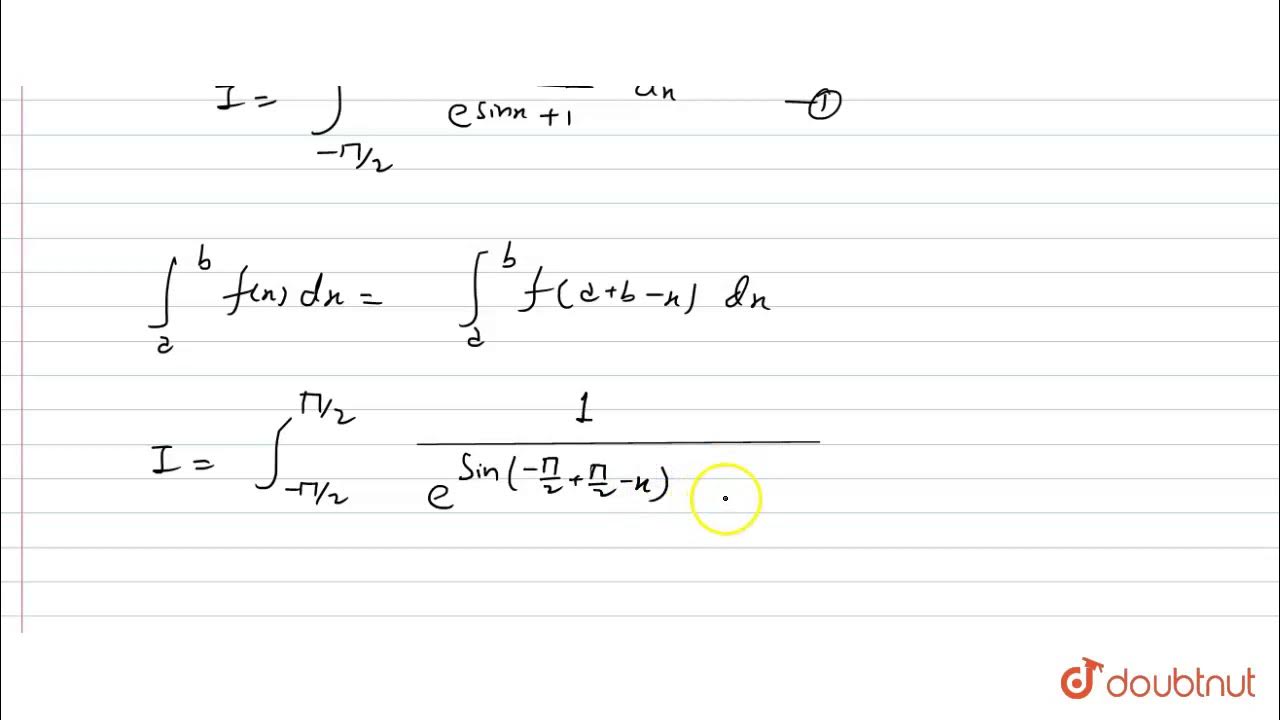 I = ∫_{-π/2} / e^{sin x} + 1 dx —①
∫_a^b f(x) dx = ∫_a^b f(a+b-x) dx
I = ∫_{-π/2}^{π/2} 1 / e^{sin(-π/2 + π/2 - x)}
doubtnut